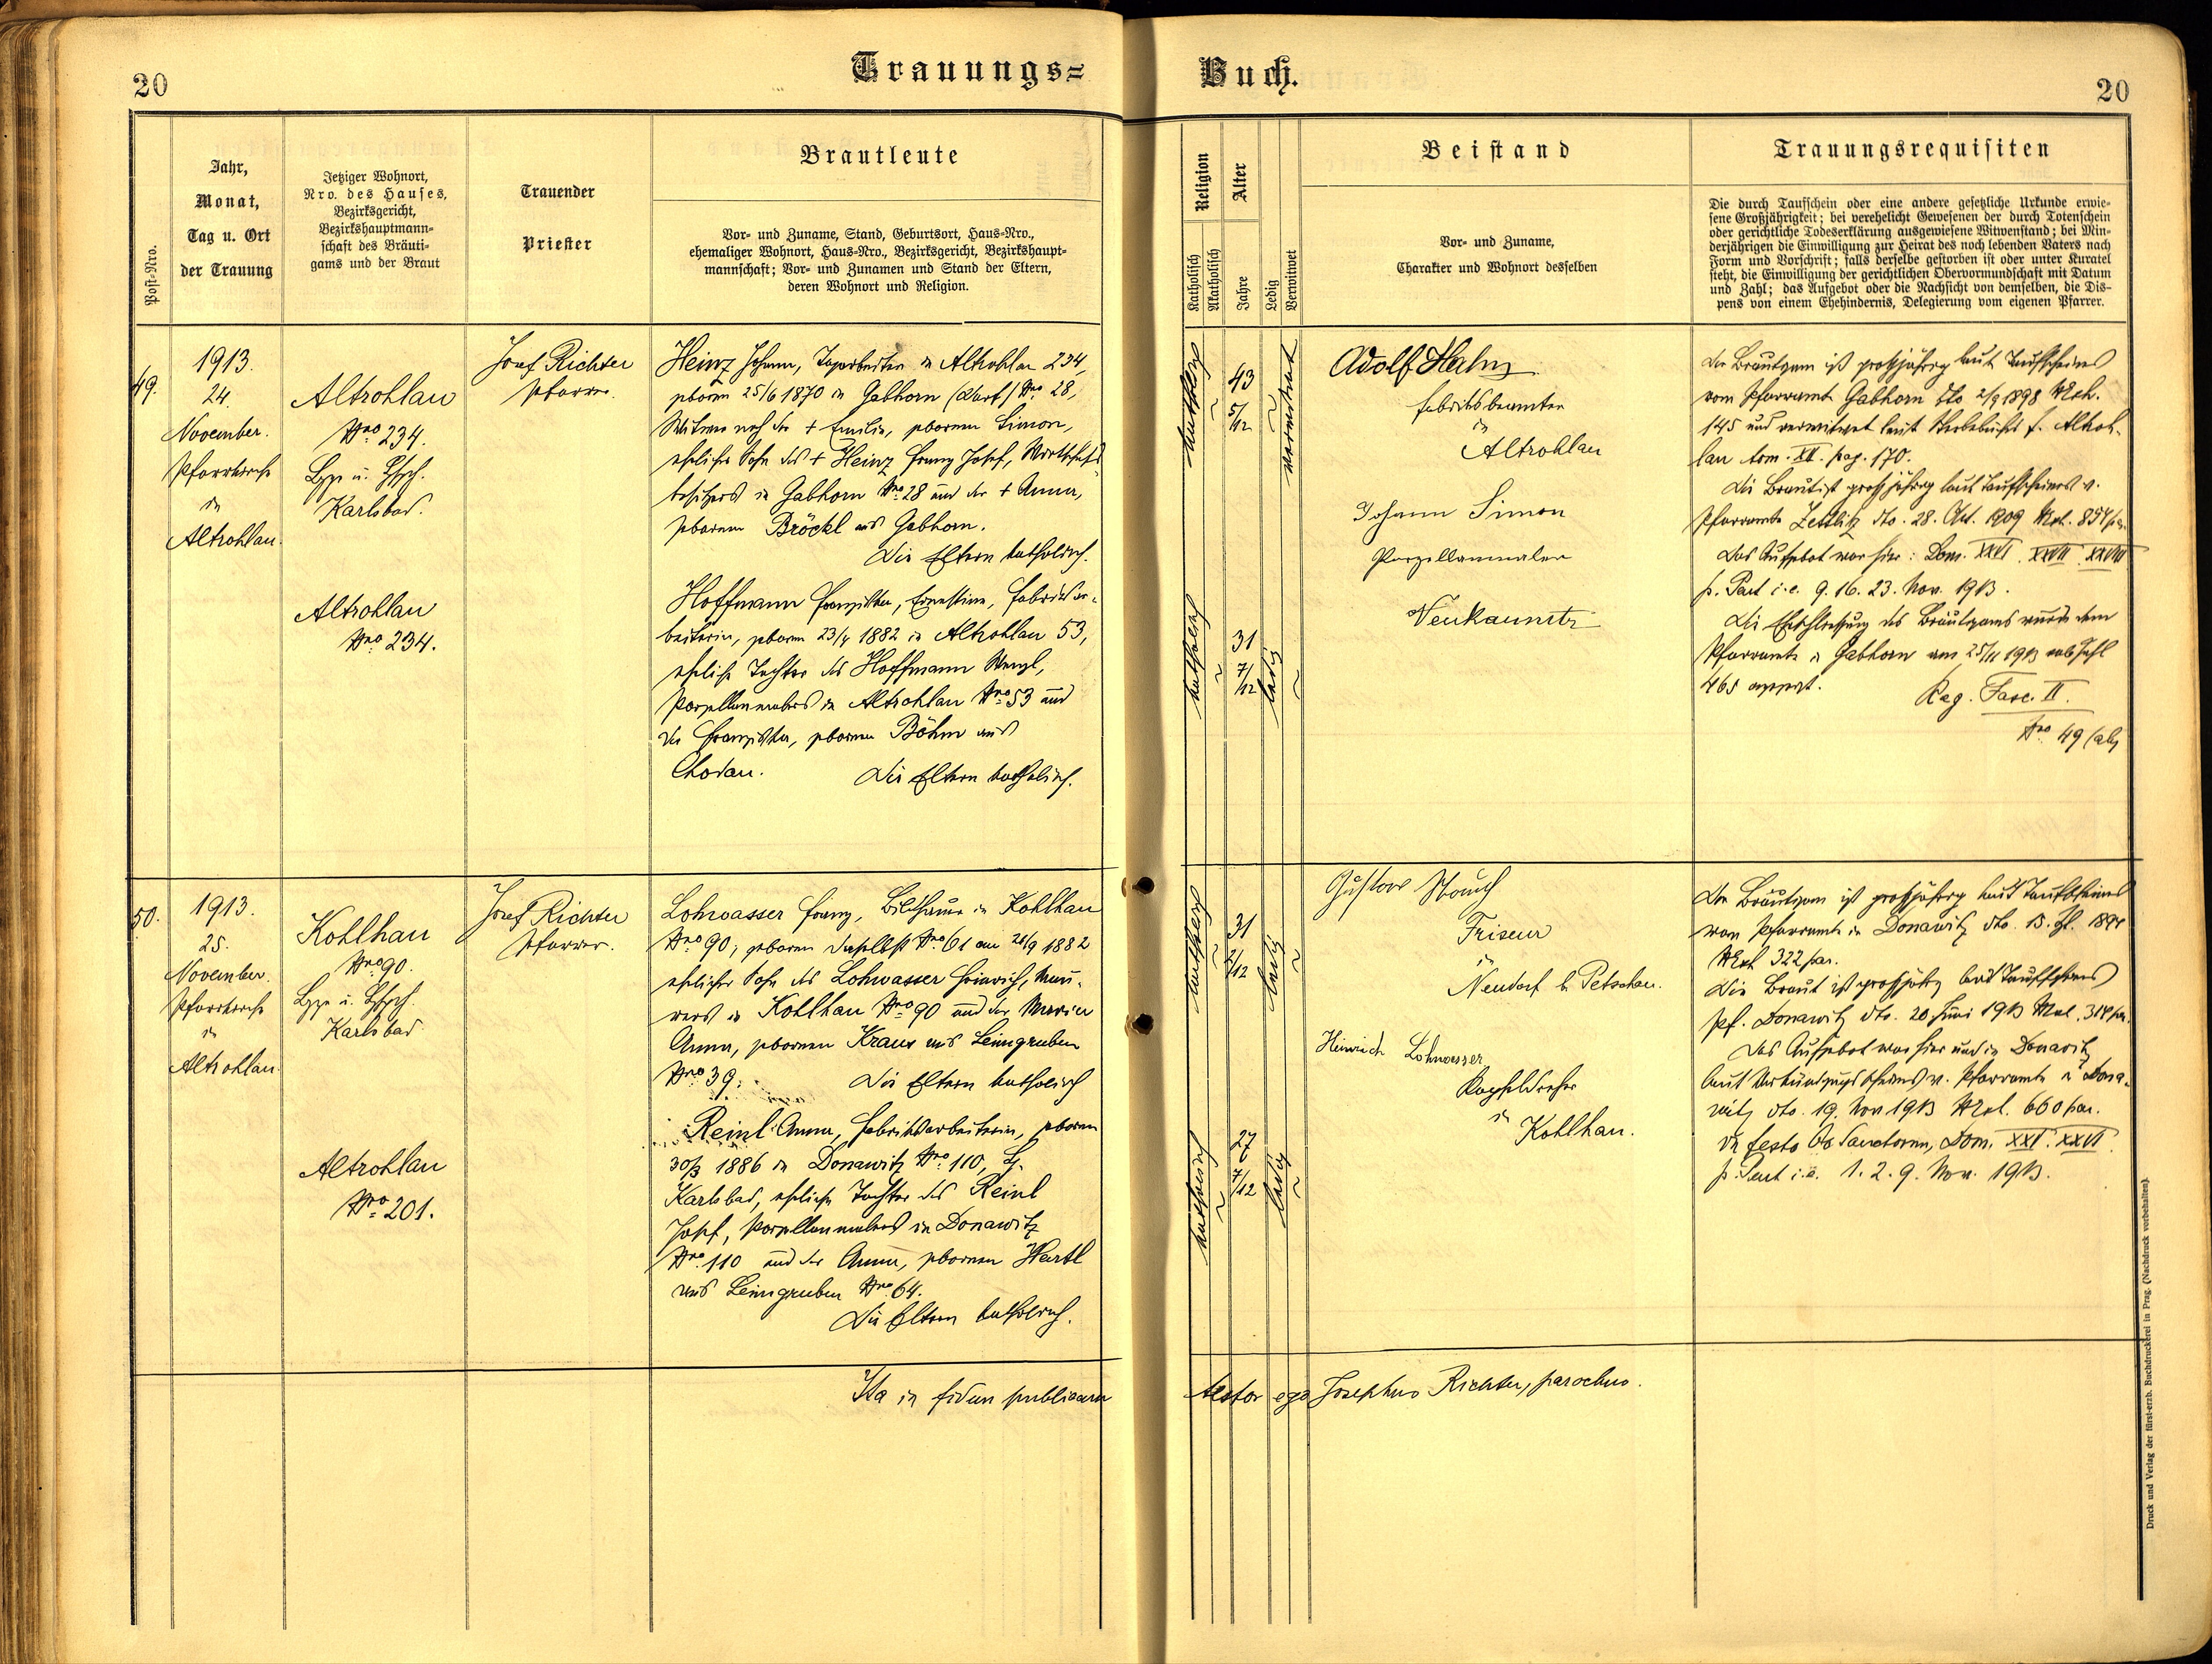 20
Trauungs=
Post-Nro.
Jahr,
Monat,
Tag u. Ort
der Trauung
Jetziger Wohnort,
Nro. des Hauses,
Bezirksgericht,
Bezirkshauptmann-
schaft des Bräuti-
gams und der Braut
Trauender
Priester
Brautleute
Vor- und Zuname, Stand, Geburtsort, Haus-Nro.,
ehemaliger Wohnort, Haus-Nro., Bezirksgericht, Bezirkshaupt-
mannschaft; Vor- und Zunamen und Stand der Eltern,
deren Wohnort und Religion.
49.
1913.
24.
November.
Pfarrkirche
in
Altrohlau.
Altrohlau
Nro 234.
Karlsbad.
Altrohlau
Nro 234.
Josef Richter
Pfarrer.
Heinz Johann, Tagarbeiter in Altrohlau 234,
geboren 25/6 1870 in Gabhorn (Dorf) Nro 28,
Witwer nach der + Emilie, geborenen Simon,
ehelicher Sohn des + Heinz Franz Josef, Wirtschafts-
besitzers in Gabhorn Nro 28 und der + Anna,
geborenen Bröckl aus Gabhorn.
Die Eltern katholisch.
Hoffmann Franziska, Ernestine, Fabriksar-
beiterin, geboren 23/4 1882 in Altrohlau 53,
eheliche Tochter des Hoffmann Wenzl,
Porzellanmalers in Altrohlau Nro 53 und
der Franziska, geborenen Böhm aus
Chodau. Die Eltern katholisch.
50.
1913.
25.
November.
Pfarrkirche
in
Altrohlau.
Kohlhau
Nro 90.
Karlsbad
Altrohlau
Nro 201.
Josef Richter
Pfarrer.
Lohwasser Franz, Bildhauer in Kohlhau
Nro 90; geboren daselbst Nro 61 am 21/9 1882
ehelicher Sohn des Lohwasser Heinrich, Mau-
rers in Kohlhau Nro 90 und der Maria
Anna, geborenen Kraus aus Leimgruben
Nro 39. Die Eltern katholisch
Reinl Anna, Fabriksarbeiterin, geboren
30/3 1886 in Donawitz Nro 110, Bz.
Karlsbad, eheliche Tochter des Reinl
Josef, Porzellanmalers in Donawitz
Nro 110 und der Anna, geborenen Hartl
aus Leimgruben Nro 64.
Die Eltern katholisch.
Ita in fidem publicam
Buch.
20
Religion
Katholisch
Akatholisch
Alter
Jahre
Ledig
Verwitwet
Beistand
Vor- und Zuname,
Charakter und Wohnort desselben
Trauungsrequisiten
Die durch Taufschein oder eine andere gesetzliche Urkunde erwie-
sene Großjährigkeit; bei verehelicht Gewesenen der durch Totenschein
oder gerichtliche Todeserklärung ausgewiesene Witwenstand; bei Min-
derjährigen die Einwilligung zur Heirat des noch lebenden Vaters nach
Form und Vorschrift; falls derselbe gestorben ist oder unter Kuratel
steht, die Einwilligung der gerichtlichen Obervormundschaft mit Datum
und Zahl; das Aufgebot oder die Nachsicht von demselben, die Dis-
pens von einem Ehehindernis, Delegierung vom eigenen Pfarrer.
katholisch
43
5/12
verwitwet
katholisch
31
7/12
ledig
Adolf Hahn
Fabriksbeamter
in
Altrohlau
Johann Simon
Porzellanmaler
Neukaunitz
Der Bräutigam ist großjährig laut Taufscheines
vom Pfarramte Gabhorn dto 2/9 1898 Nexh.
145 und verwitwet laut Sterbebuches f. Altroh-
lau tom. XV. pag. 170.
Die Braut ist großjährig laut Taufscheines v.
Pfarramte Zettlitz dto. 28. Okt. 1909
Das Aufgebot war hier: Dom. XXVI. XXVII. XXVIII
p. Pent i.e. 9. 16. 23. Nov. 1913.
Die Eheschließung des Bräutigams wurde dem
Pfarramte in Gabhorn am 25/11 1913 sub Zahl
465 angezt. Reg. Fasc. II.
Nro 49
katholisch
31
2/12
ledig
katholisch
27
7/12
ledig
Gustav
Friseur
in
Neudorf b. Petschau.
Heinrich Lohwasser
in
Kohlhau.
Der Bräutigam ist großjährig laut Taufscheines
vom Pfarramte in Donawitz dto. 15.
Nexh 322 par.
Die Braut ist großjährig laut Taufscheines
Pf. Donawitz dto. 20 Juni 1913
Das Aufgebot war hier und in Donawitz
laut Verkündigungsscheines v. Pfarramte in Dona-
witz dto. 19. Nov 1913 Nexh. 660 par.
in festo Oo Sanctorum, Dom. XXV. XXVI
p. Pent i.e. 1. 2. 9. Nov. 1913.
testor ego Josephus Richter, parochus.
Druck und Verlag der fürst-erzb. Buchdruckerei in Prag. (Nachdruck vorbehalten).